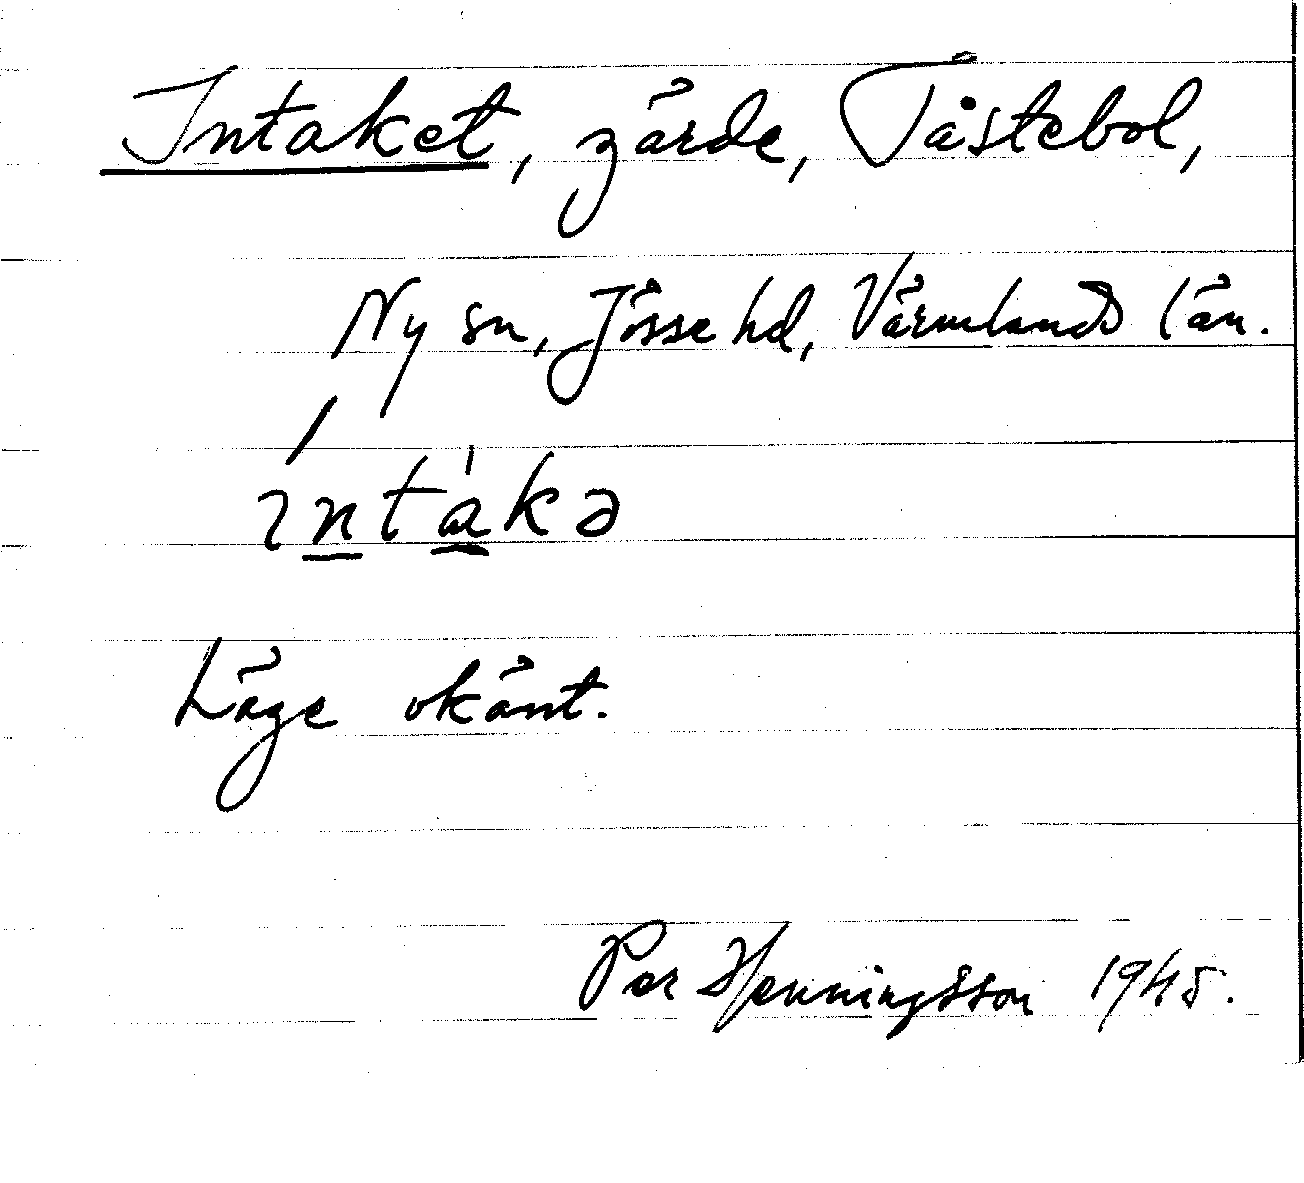 Intaket, gärde, Tåstebol,
Ny sn, Jösse hd, Värmlands län.
íntákə
Läge okänt.
Per Henningsson 1945.